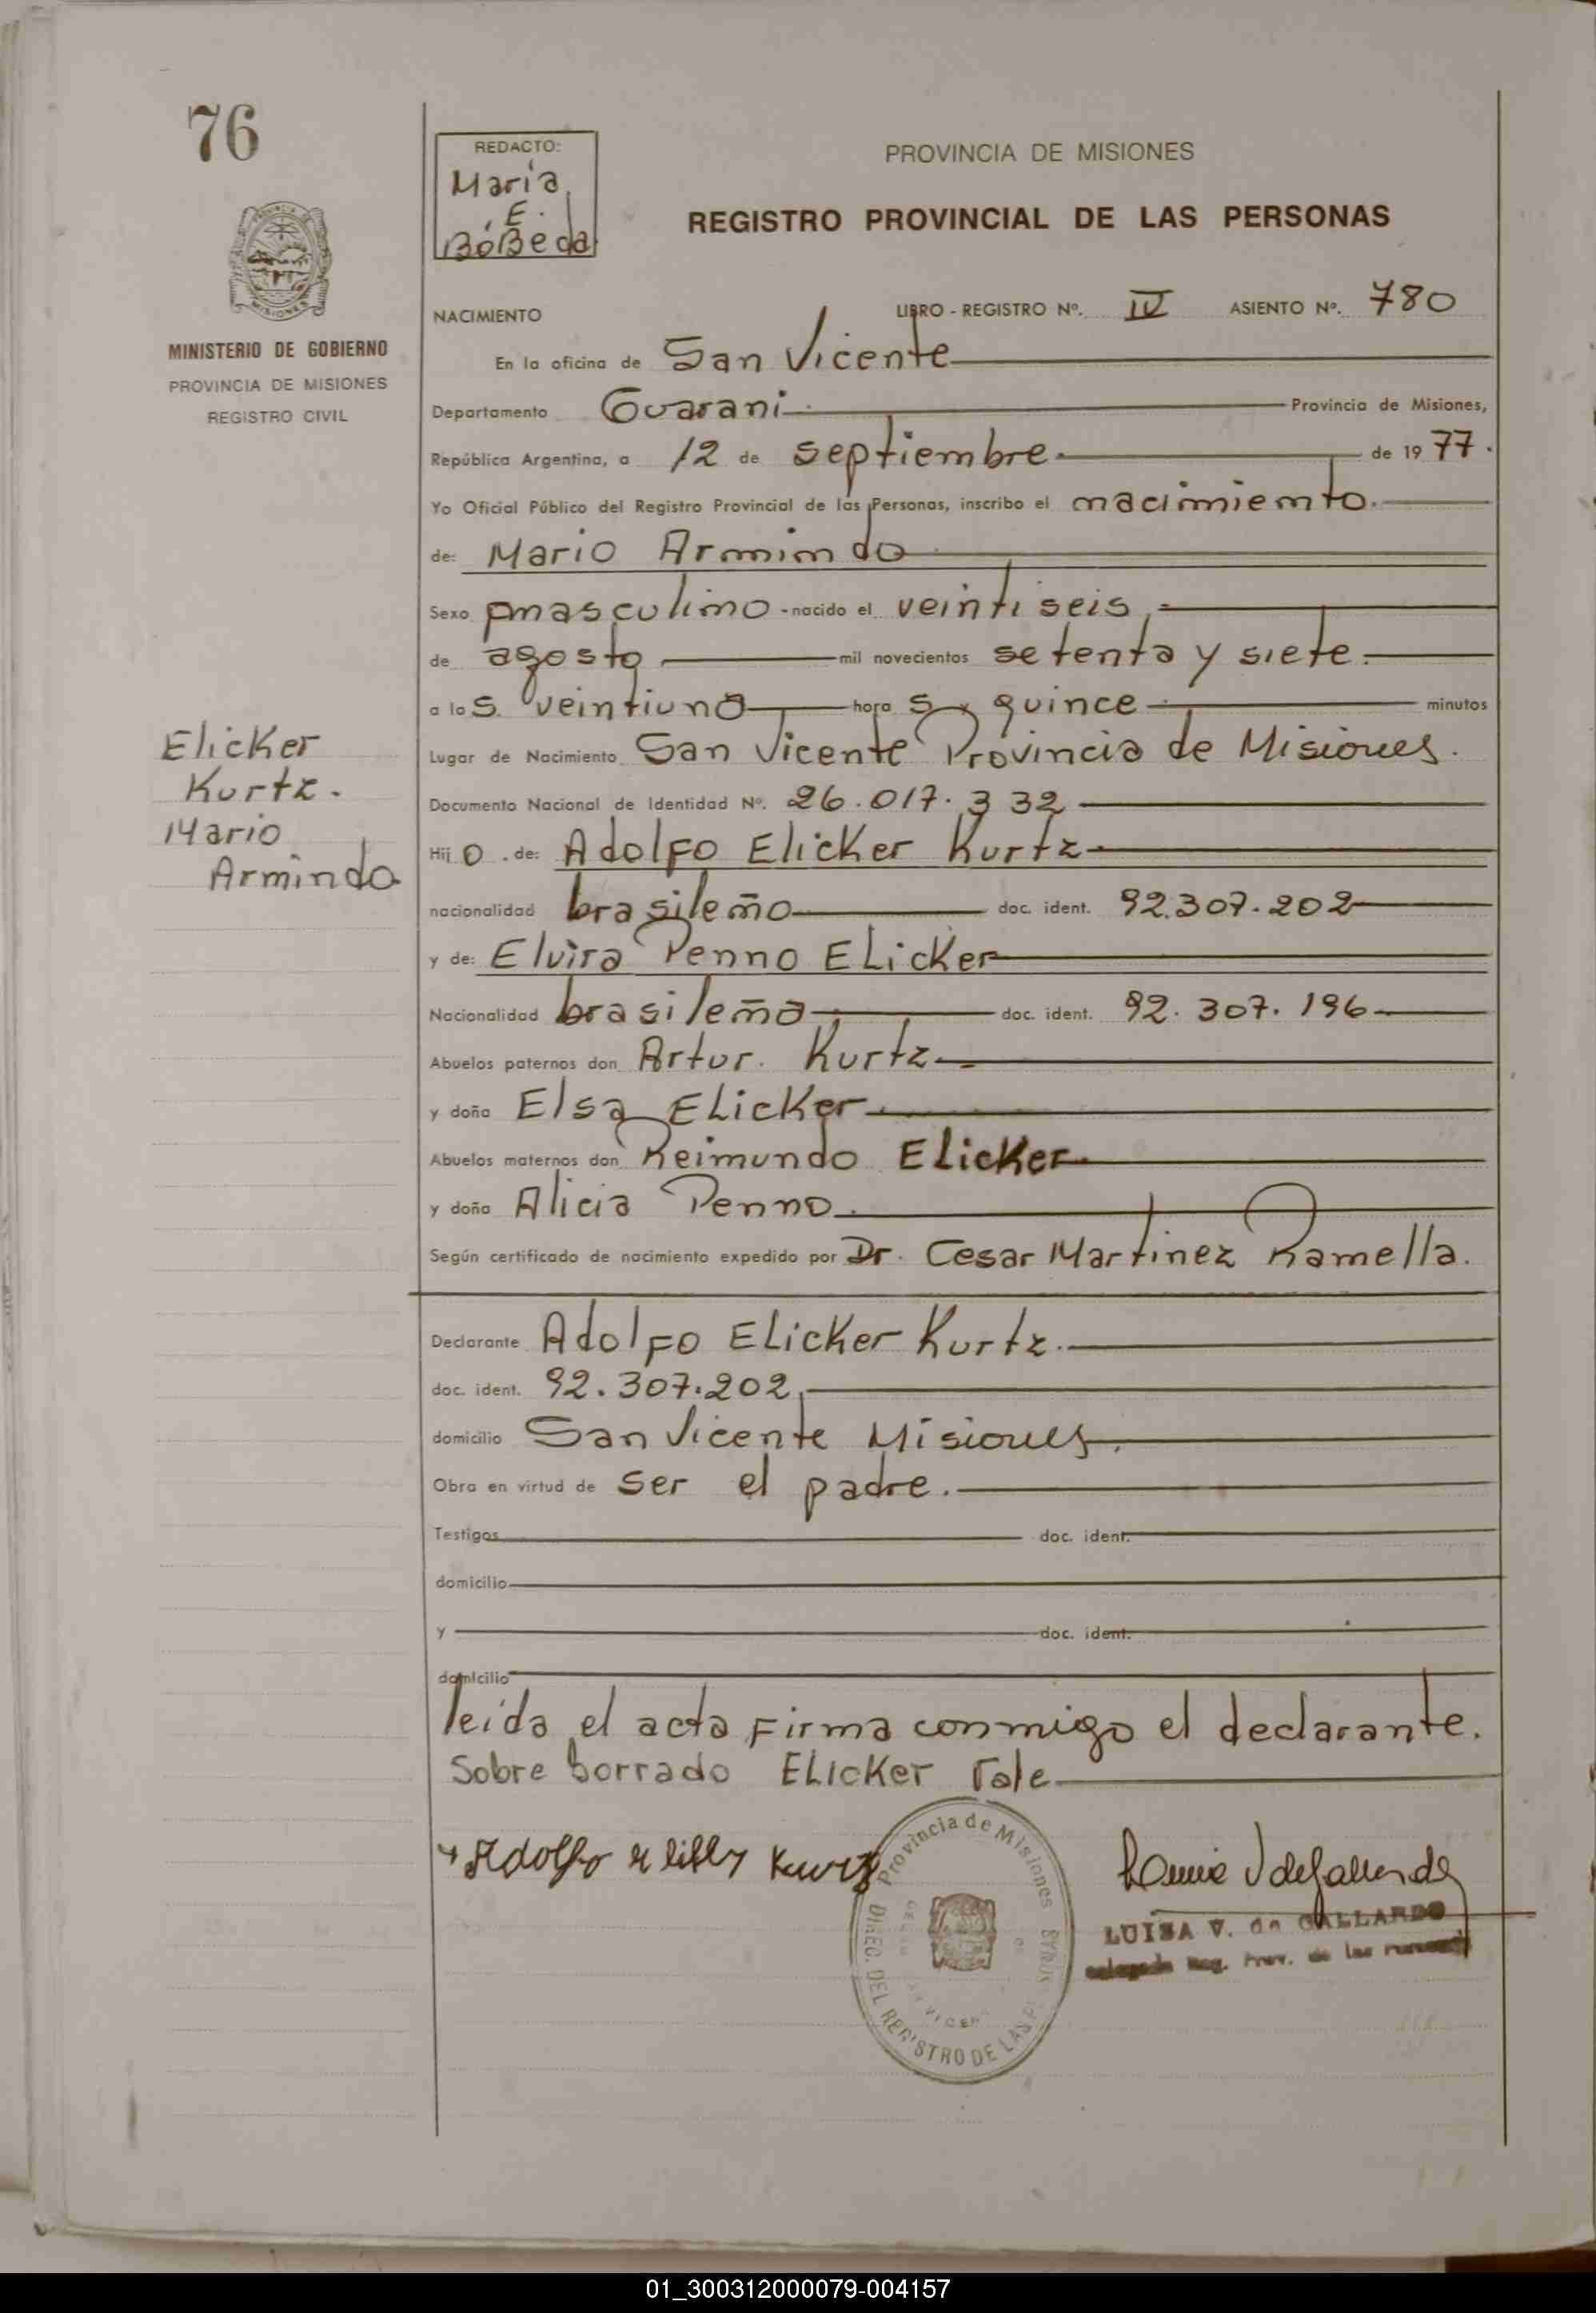 76
MINISTERIO DE GOBIERNO
PROVINCIA DE MISIONES
REGISTRO CIVIL
Elicker
Kurtz.
Mario
Armindo
REDACTO:
Maria
E.
BóBeda
PROVINCIA DE MISIONES
REGISTRO PROVINCIAL DE LAS PERSONAS
NACIMIENTO LIBRO - REGISTRO Nº. IV ASIENTO Nº. 780
En la oficina de San Vicente
Departamento Guarani Provincia de Misiones,
República Argentina, a 12 de septiembre. de 1977.
Yo Oficial Público del Registro Provincial de las Personas, inscribo el nacimiento.
de: Mario Armindo
Sexo masculino - nacido el veintiseis
de agosto mil novecientos setenta y siete.
a las. veintiuna horas y quince minutos
Lugar de Nacimiento San Vicente Provincia de Misiones.
Documento Nacional de Identidad Nº. 26.017.332
Hijo de: Adolfo Elicker Kurtz
nacionalidad brasileño doc. ident. 92.307.202
y de: Elvira Penno Elicker
Nacionalidad brasileña doc. ident. 92.307.196
Abuelos paternos don Artur. Kurtz
y doña Elsa Elicker
Abuelos maternos don Reimundo Elicker
y doña Alicia Penno.
Según certificado de nacimiento expedido por Dr. Cesar Martinez Ramella.
Declarante Adolfo Elicker Kurtz.
doc. ident. 92.307.202
domicilio San Vicente Misiones.
Obra en virtud de ser el padre.
Testigos doc. ident.
domicilio
y doc. ident.
domicilio
leída el acta Firma conmigo el declarante.
Sobre borrado Elicker Vale
Adolfo Kurtz
Provincia de Misiones
DIREC. DEL REGISTRO DE LAS
LUISA V. de GALLARDO
Reg. Prov. de las
01_300312000079-004157